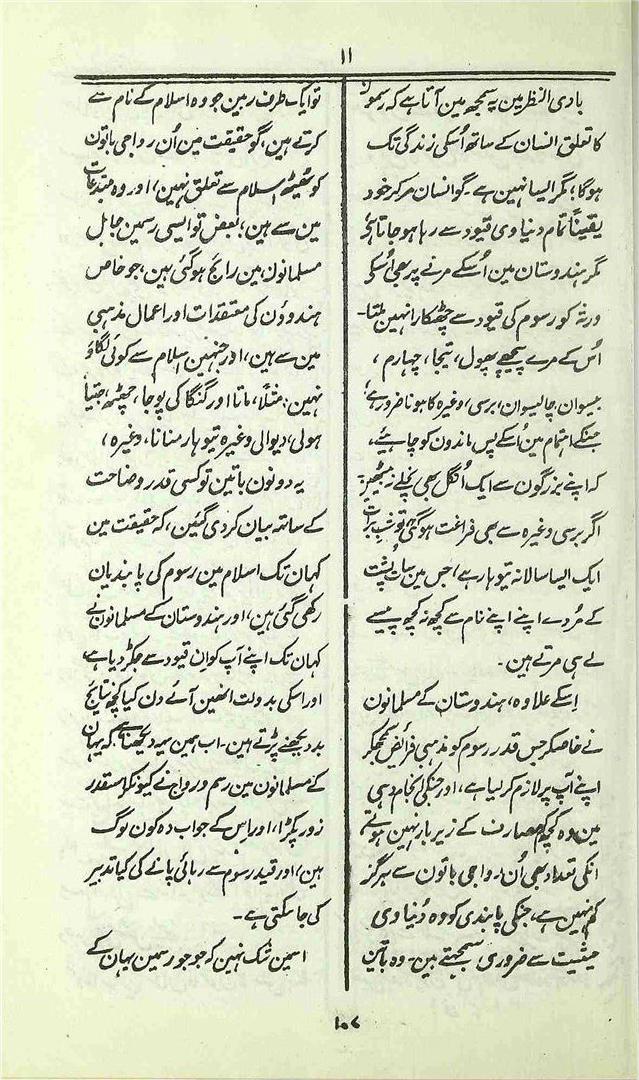 ۱۱
بادی النظر مین یہ سمجھ مین آتا ہے کہ رسمون
کا تعلق انسان کے ساتھ اُسکی زندگی تک
ہوگا؛ مگر ایسا نہین ہے۔ گو انسان مرکر خود
یقیناً تمام دنیاوی قیود سے رہا ہو جاتا ہے؛
مگر ہندوستان مین اُسکے مرنے پر بھی اُسکے
ورثہ کو رسوم کی قیود سے چھٹکارا نہین ملتا۔
اُس کے مرے پیچھے پھول، تیجا، چہارم،
بیسیوان، چالیسوان، برسی، وغیرہ کا ہونا ضرور ہے؛
جنکے اہتمام مین اُسکے پس ماندون کو چاہیے،
کہ اپنے بزرگون سے ایک اُنگل بھی نیچے نہ بیٹھین۔
اگر برسی وغیرہ سے بھی فراغت ہوگئی، تو شب برات
ایک ایسا سالانہ تیوہار ہے، جس مین سات پشت
کے مُردے اپنے اپنے نام سے کچھ نہ کچھ پیسے
لے ہی مرتے ہین۔
اِسکے علاوہ، ہندوستان کے مسلمانون
نے خاصکر جس قدر رسوم کو مذہبی فرائض سمجھکر
اپنے آپ پر لازم کر لیا ہے، اور جنکی انجام دہی
مین وہ کچھ کم مصارف کے زیر بار نہین ہوتے
انکی تعداد بھی اُن رواجی باتون سے ہرگز
کم نہین ہے، جنکی پابندی کو وہ دُنیاوی
حیثیت سے ضروری سمجھتے ہین۔ وہ باتین
تو ایک طرف رہین جو وہ اسلام کے نام سے
کرتے ہین، گو حقیقت مین اُن رواجی باتون
کو ٹھیٹھ اسلام سے تعلق نہین، اور وہ مبتدعات
مین سے ہین؛ بعض تو ایسی رسمین جاہل
مسلمانون مین رائج ہوگئی ہین، جو خاص
ہندوؤن کی معتقدات اور اعمال مذہبی
مین سے ہین، اور جنہین اسلام سے کوئی لگاؤ
نہین: مثلاً، ماتا اور گنگا کی پوجا، چھٹھ، جتیا
ہولی، دیوالی وغیرہ تیوہار منانا، وغیرہ،
یہ دونون باتین تو کسی قدر وضاحت
کے ساتھ بیان کر دی گئین، کہ حقیقت مین
کہان تک اسلام مین رسوم کی پابندیان
رکھی گئی ہین، اور ہندوستان کے مسلمانون نے
کہان تک اپنے آپ کو اِن قیود سے جکڑ دیا ہے،
اور اسکی بدولت انھین آئے دن کیا کچھ نتایج
بد دیکھنے پڑتے ہین۔ اب ہمین یہ دیکھنا ہے کہ یہان
کے مسلمانون مین رسم ورواج نے کیونکر اسقدر
زور پکڑا، اور اِس کے جواب دہ کون لوگ
ہین، اور قید رسوم سے رہائی پانے کی کیا تدبیر
کی جاسکتی ہے۔
اسمین شک نہین کہ جو جو رسمین یہان کے
۱۰۷